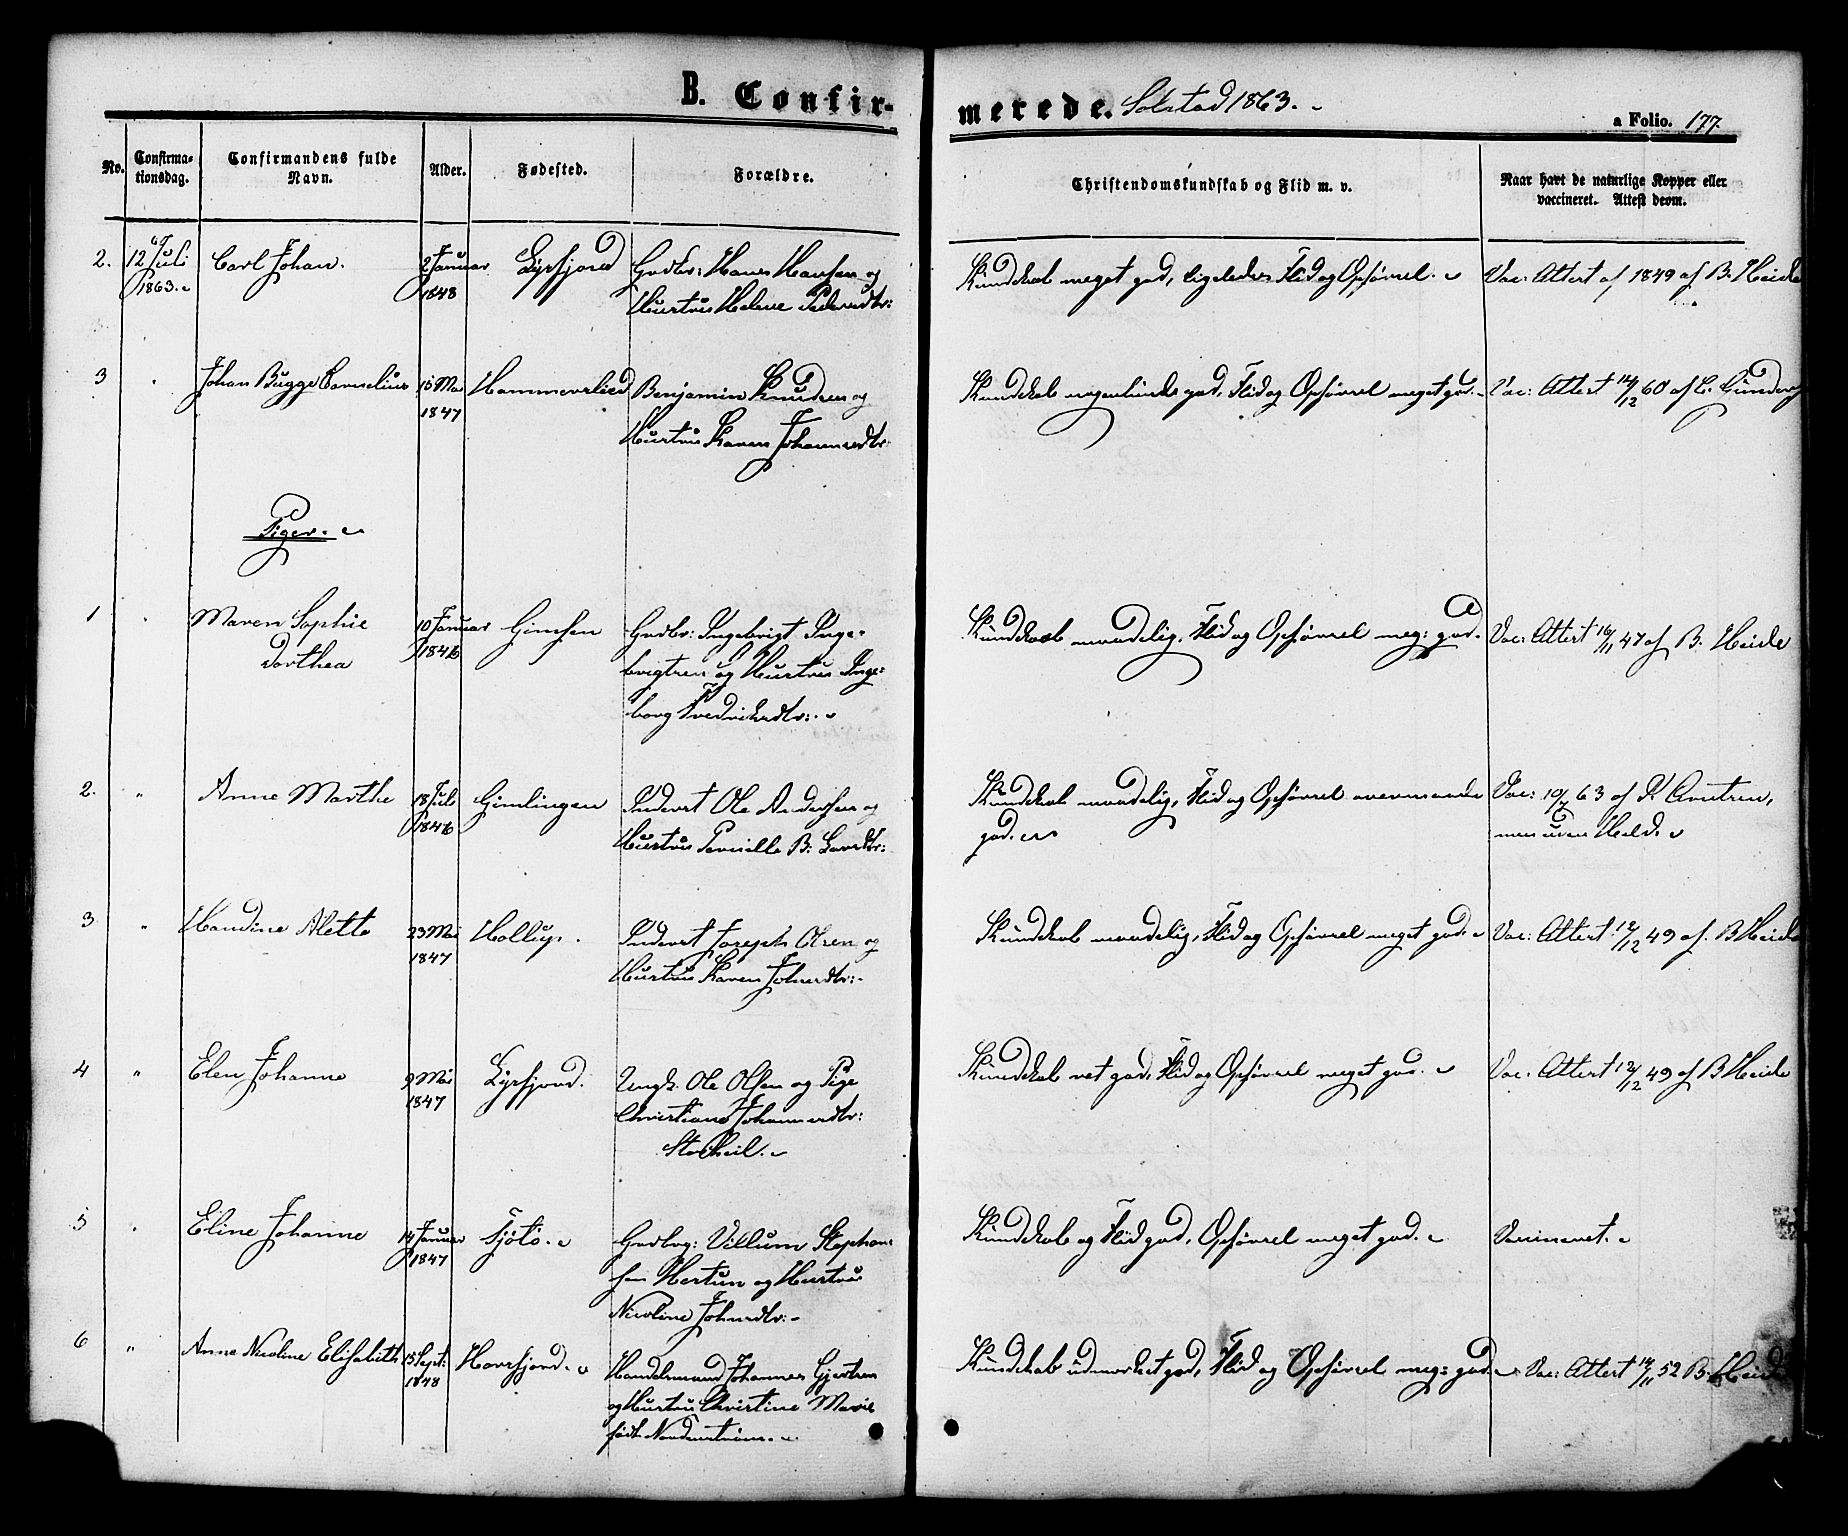 B. Confir-
merede. Solstad 1863.
a Folio. 177.
No.
Confirma-
tionsdag.
Confirmandens fulde
Navn.
Alder.
Fødested.
Forældre.
Christendomskundskab og Flid m. v.
Naar havt de naturlige Kopper eller
vaccineret. Attest derom.
2. 12 Juli Carl Johan. 2 Januar Lyrsfjord Grdbr: Hans Hansen og Kundskab meget god, ligeledes Flid og Opførsel. Vac: Attest af 1849 af B. Heide
1863. 1848 Hustru Helene Pedersdtr:
3 " Johan Bugge Cornelius 15 Mai Hammerslied Benjamin Knudsen og Kundskab nogenlunde god, Flid og Opførsel meget god. Vac: Attest 14/12 60 af
1847 Hustru Karen Johannesdtr:
Piger.
1 " Maren Sophie 10 Januar Gimsen Grdbr: Ingebrigt Inge- Kundskab maadelig, Flid og Opførsel meg: god. Vac: Attest 16/11 47 af B. Heide
Dorthea 1846 brigtsen og Hustru Inge-
borg Fredriksdtr:
2. " Anne Marthe 18 Juli Gimlingen Inderst Ole Andersen og Kundskab maadelig, Flid og Opførsel overmaade Vac: 10/7 63 af
1846 Hustru Pernille B. god. men uden Held.
3 " Handine Alette 23 Mai Hollup. Inderst Joseph Olsen og Kundskab maadelig, Flid og Opførsel meget god. Vac: Attest 12/12 49 af. B Heide
1847 Hustru Karen Johnsdtr:
4 " Elen Johanne 9 Mai Lyrsfjord. Ungk. Ole Olsen og Pige Kundskab ret god. Flid og Opførsel meget god. Vac: Attest 12/12 49 af B Heide
1847 Christiane Johannesdtr:
5 " Eline Johanne 14 Januar Tjötö. Grdbrg: Villum Stephan- Kundskab og Flid god, Opførsel meget god. Vaccineret.
1847 sen Hertun og Hustru
Nicoline Johnsdtr:
6 " Anne Nicoline Elisabeth 15 Sept: Havsfjord. Handelsmand Johannes Gjertsen Kundskab udmærket god, Flid og Opførsel meg: god. Vac: Attest 14/11 52 B. Heide
1848 og Hustru Christine Marie
født Nordenstrøm.